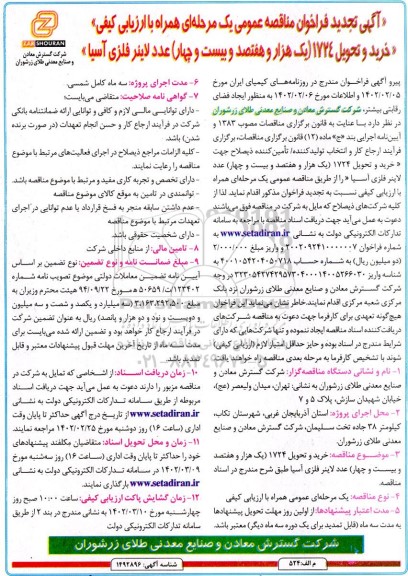 « آگهی تجدید فراخوان مناقصه عمومی یک مرحله‌ای همراه با ارزیابی کیفی»
« خرید و تحویل ۱۷۲۴ (یک هزار و هفتصد و بیست و چهار) عدد لاینر فلزی آسیا »
ZARSHOURAN
شرکت گسترش معادن
و صنایع معدنی طلای زرشوران
پیرو آگهی فراخوان مندرج در روزنامه‌های کیمیای ایران مورخ
۱۴۰۲/۰۲/۰۵ و اطلاعات مورخ ۱۴۰۲/۰۲/۰۶ به منظور ایجاد فضای
رقابتی بیشتر، شرکت گسترش معادن و صنایع معدنی طلای زرشوران
در نظر دارد با عنایت به قانون برگزاری مناقصات مصوب ۱۳۸۳ و
آیین‌نامه اجرایی بند «ج» ماده (۱۲) قانون برگزاری مناقصات، برگزاری
فرآیند ارجاع کار و انتخاب تولیدکننده/ تأمین‌کننده ذیصلاح جهت
« خرید و تحویل ۱۷۲۴ (یک هزار و هفتصد و بیست و چهار) عدد
لاینر فلزی آسیا » را از طریق مناقصه عمومی یک مرحله‌ای همراه
با ارزیابی کیفی نسبت به تجدید فراخوان مذکور اقدام نماید. لذا از
کلیه شرکت‌های ذیصلاح که مایل به شرکت در مناقصه فوق می‌باشند
دعوت به عمل می‌آید جهت دریافت اسناد مناقصه با مراجعه به سامانه
تدارکات الکترونیکی دولت به نشانی www.setadiran.ir به
شماره فراخوان ۲۰۰۲۰۹۲۴۱۰۰۰۰۰۰۷ و واریز مبلغ ۲/۰۰۰/۰۰۰
(دو میلیون ریال) به حساب
شناسه واریز
شرکت گسترش معادن و صنایع معدنی طلای زرشوران نزد بانک
مرکزی شعبه مرکزی اقدام نمایند. خاطر نشان می‌نماید این فراخوان
هیچ‌گونه تعهدی برای کارفرما جهت دعوت به مناقصه شرکت‌های
دریافت‌کننده اسناد مناقصه ایجاد ننموده و تنها شرکت‌هایی که دارای
شرایط مندرج در اسناد بوده و حایز حداقل امتیاز لازم (ارزیابی کیفی)
شوند با تشخیص کارفرما به مرحله بعدی مناقصه راه خواهند یافت
۱- نام و نشانی دستگاه مناقصه‌گزار: شرکت گسترش معادن و
صنایع معدنی طلای زرشوران به نشانی: تهران، میدان ولیعصر (عج)،
خیابان شهیدان سازش، پلاک ۵ و ۷
۲- محل اجرای پروژه: استان آذربایجان غربی، شهرستان تکاب،
کیلومتر ۳۸ جاده تخت سلیمان، شرکت گسترش معادن و صنایع
معدنی طلای زرشوران.
۳- موضوع مناقصه: خرید و تحویل ۱۷۲۴ (یک هزار و هفتصد
و بیست و چهار) عدد لاینر فلزی آسیا طبق شرح مندرج در اسناد
مناقصه.
۴- نوع مناقصه: یک مرحله‌ای عمومی همراه با ارزیابی کیفی
۵- مدت اعتبار پیشنهادها: از اولین روز مهلت تحویل پیشنهادها
به مدت سه ماه (قابل تمدید برای یک دوره سه ماه دیگر) معتبر باشد.
۶- مدت اجرای پروژه: سه ماه کامل شمسی.
۷- گواهی نامه صلاحیت: متقاضی می‌بایست:
- دارای توانایی مالی لازم و کافی و توانایی ارائه ضمانتنامه بانکی
شرکت در فرآیند ارجاع کار و حسن انجام تعهدات (در صورت برنده
شدن) باشد.
- کلیه الزامات مراجع ذیصلاح در اجرای فعالیت‌های مرتبط با موضوع
مناقصه را رعایت نمایند.
- دارای تخصص و تجربه کاری مفید و مرتبط با موضوع مناقصه باشد.
- توانمندی در تامین به موقع کالای موضوع مناقصه
- عدم داشتن سابقه منجر به فسخ قرارداد یا عدم توانایی در اجرای
تعهدات مرتبط با موضوع مناقصه
- دارای شخصیت حقوقی باشد
۸- تامین مالی: از منابع داخلی شرکت
۹- مبلغ ضمانت نامه و نوع تضمین: نوع تضمین بر اساس
آیین نامه تضمین معاملات دولتی موضوع تصویب نامه شماره
۱۲۳۴۰۲/ت۵۰۶۵۹ هـ مورخ ۹۴/۰۹/۲۲ هیئت محترم وزیران به
مبلغ ۳/۱۶۳/۲۹۲/۵۰۰ (سه میلیارد و یکصد و شصت و سه میلیون
و دویست و نود و دو هزار و پانصد) ریال به عنوان تضمین شرکت
در فرآیند ارجاع کار خواهد بود و تضمین ارائه شده می‌بایست برای
مدت سه ماه از تاریخ آخرین مهلت قبول پیشنهادات معتبر و قابل
تمدید باشد.
۱۰- زمان دریافت اسناد: از اشخاصی که تمایل به شرکت در
مناقصه مزبور را دارند دعوت به عمل می‌آید جهت دریافت اسناد
مربوطه از طریق سامانه تدارکات الکترونیکی دولت به نشانی
www.setadiran.ir از تاریخ درج آگهی حداکثر تا پایان وقت
اداری (ساعت ۱۶) روز دوشنبه مورخ ۱۴۰۲/۰۲/۲۵ مراجعه نمایند.
۱۱- زمان و محل تحویل اسناد: متقاضیان مکلفند پیشنهادهای
خود را حداکثر تا پایان وقت اداری (ساعت ۱۶) روز سه‌شنبه مورخ
۱۴۰۲/۰۳/۰۹ در سامانه تدارکات الکترونیکی دولت به نشانی
www.setadiran.ir بارگذاری نمایند.
۱۲- زمان گشایش پاکت ارزیابی کیفی: ساعت ۱۰:۰۰ صبح روز
چهارشنبه مورخ ۱۴۰۲/۰۳/۱۰ به نشانی مندرج در بند ۲ از طریق
سامانه تدارکات الکترونیکی دولت
شرکت گسترش معادن و صنایع معدنی طلای زرشوران
م الف: ۵۲۴
شناسه آگهی: ۱۴۹۲۸۹۶